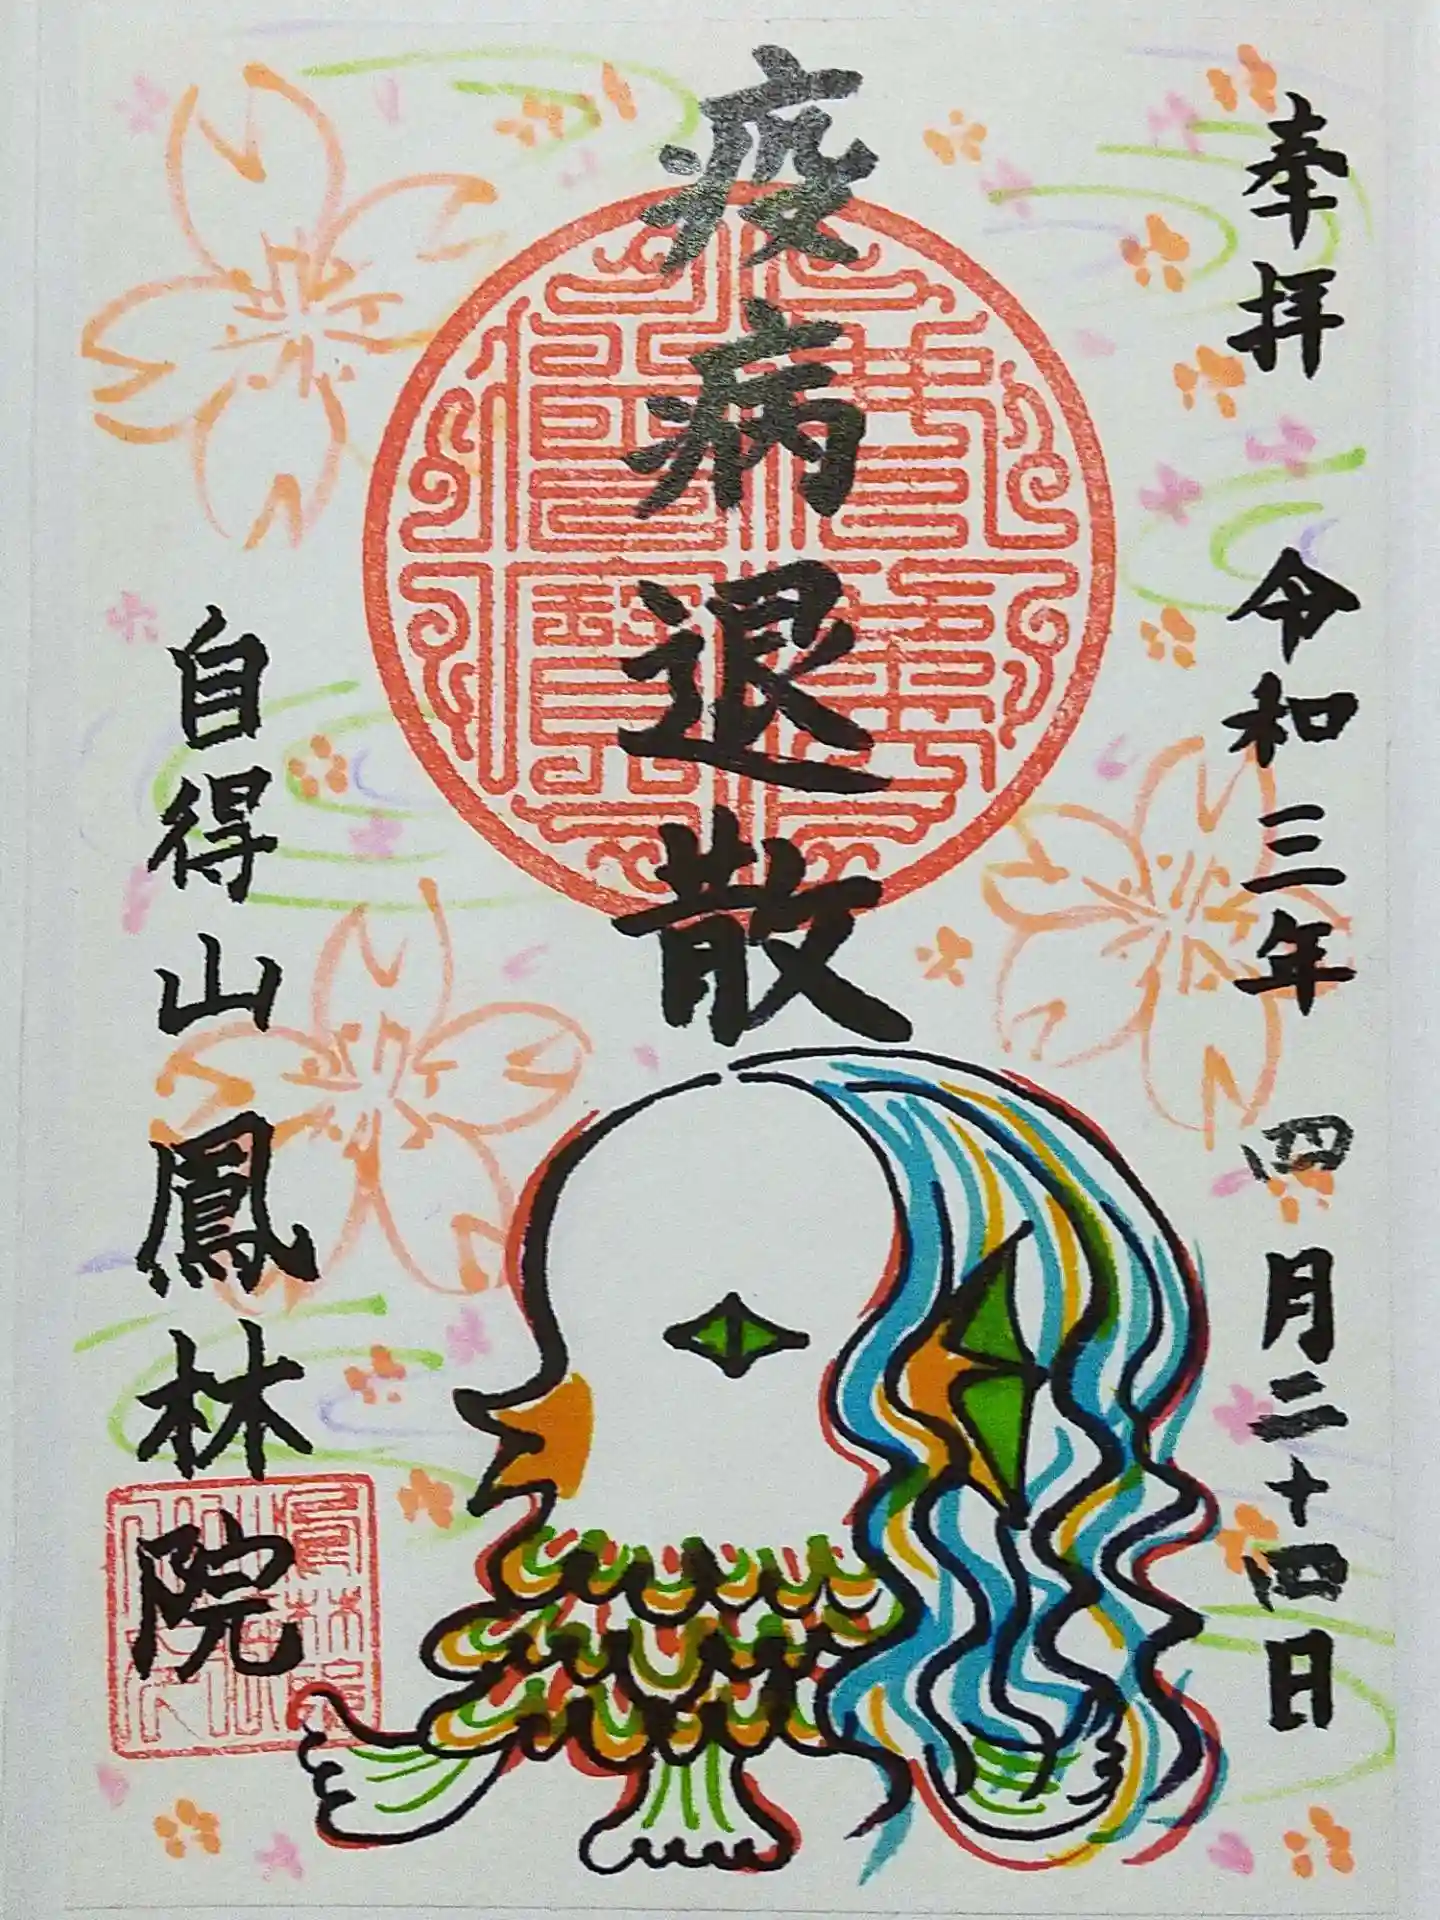 奉拝 令和三年 四月二十四日
疫病退散
自得山鳳林院